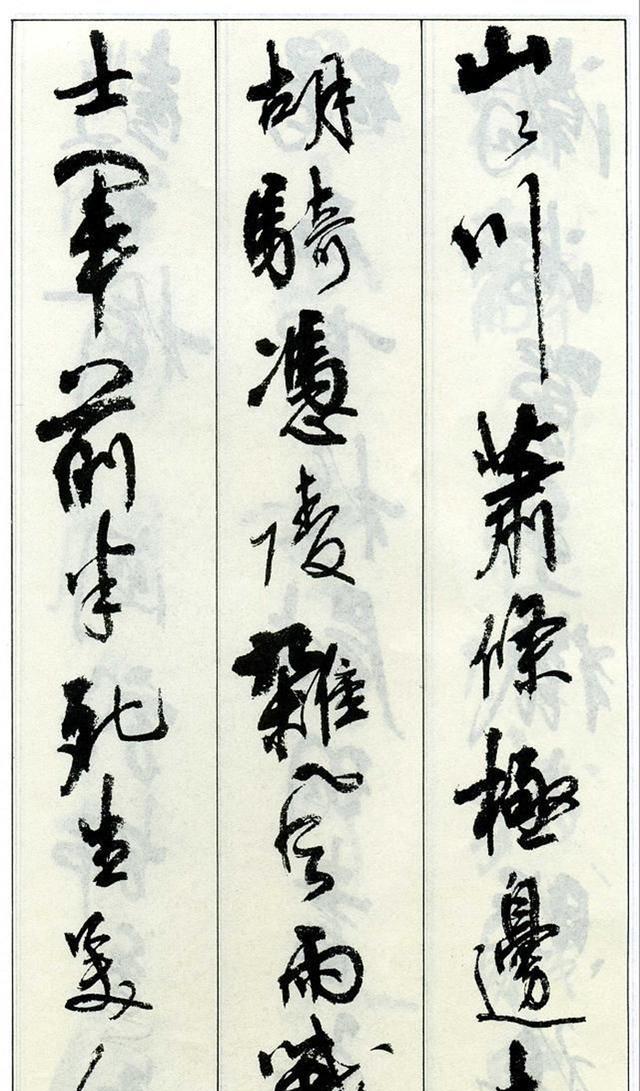 山川蕭條極邊
胡騎憑陵雜風雨戰
士軍前半死生美